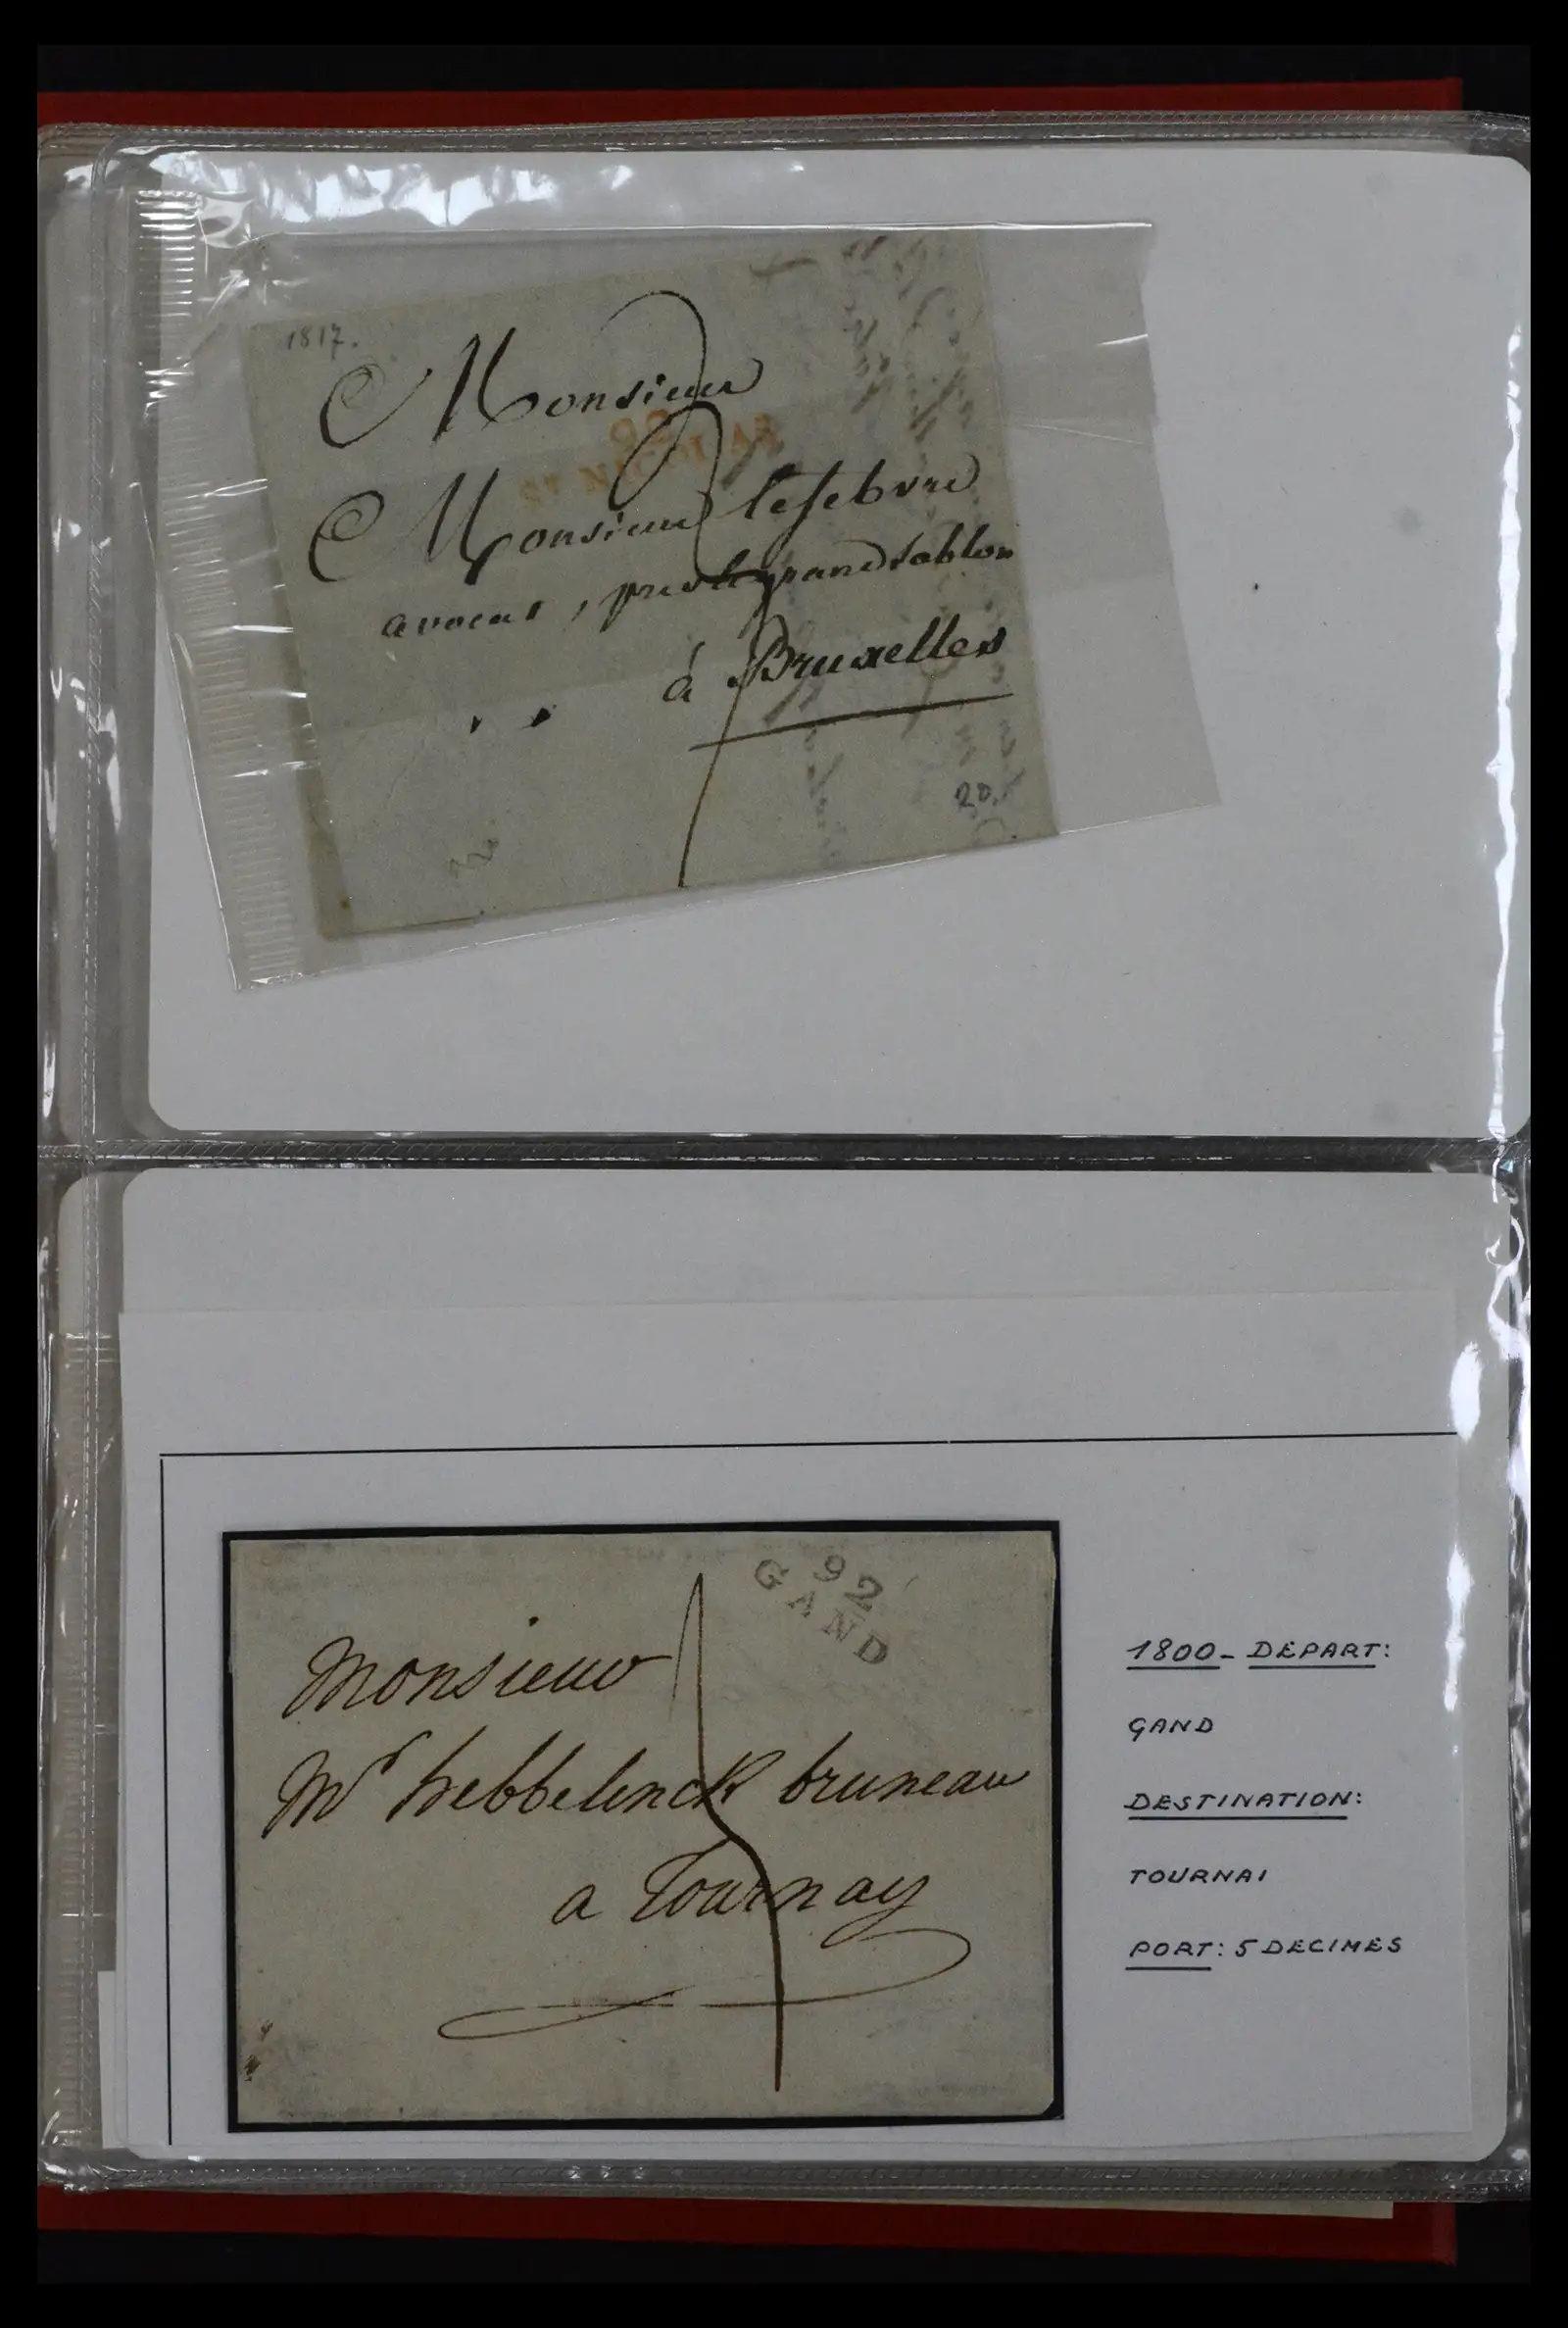 1817.
Monsieur
Monsieur lefebvre
avocat, pres le grand sablon
à Bruxelles
20.
92
GAND
Monsieur
Mr hebbelinck bruneau
a Tournay
1800 - DEPART:
GAND
DESTINATION:
TOURNAI
PORT: 5 DECIMES